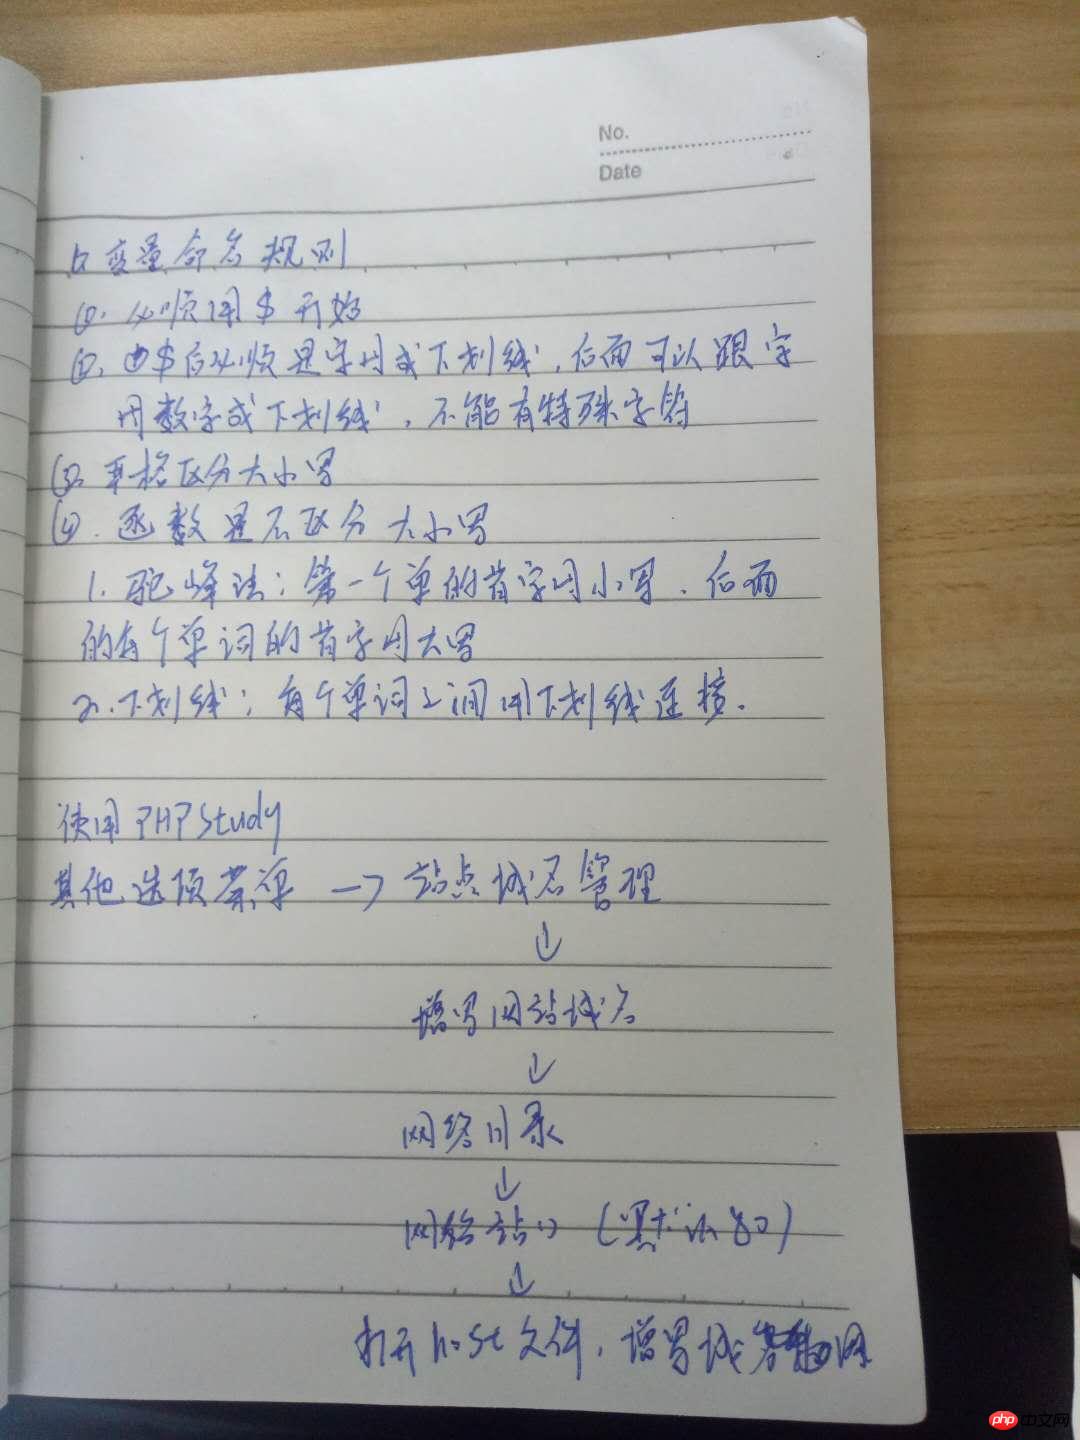 No.
Date
变量命名规则
①. 必须用$开始
②. $后必须是字母或下划线,后面可以跟字
母数字或下划线,不能有特殊字符
③. 严格区分大小写
④. 函数是不区分大小写
1. 驼峰法:第一个单的首字母小写、后面
的每个单词的首字母大写
2. 下划线:每个单词之间用下划线连接.
使用PHPStudy
其他选项菜单 → 站点域名管理
↓
增写网站域名
↓
网络目录
↓
网络站口 (默认80)
↓
打开host文件,增写域
php中文网